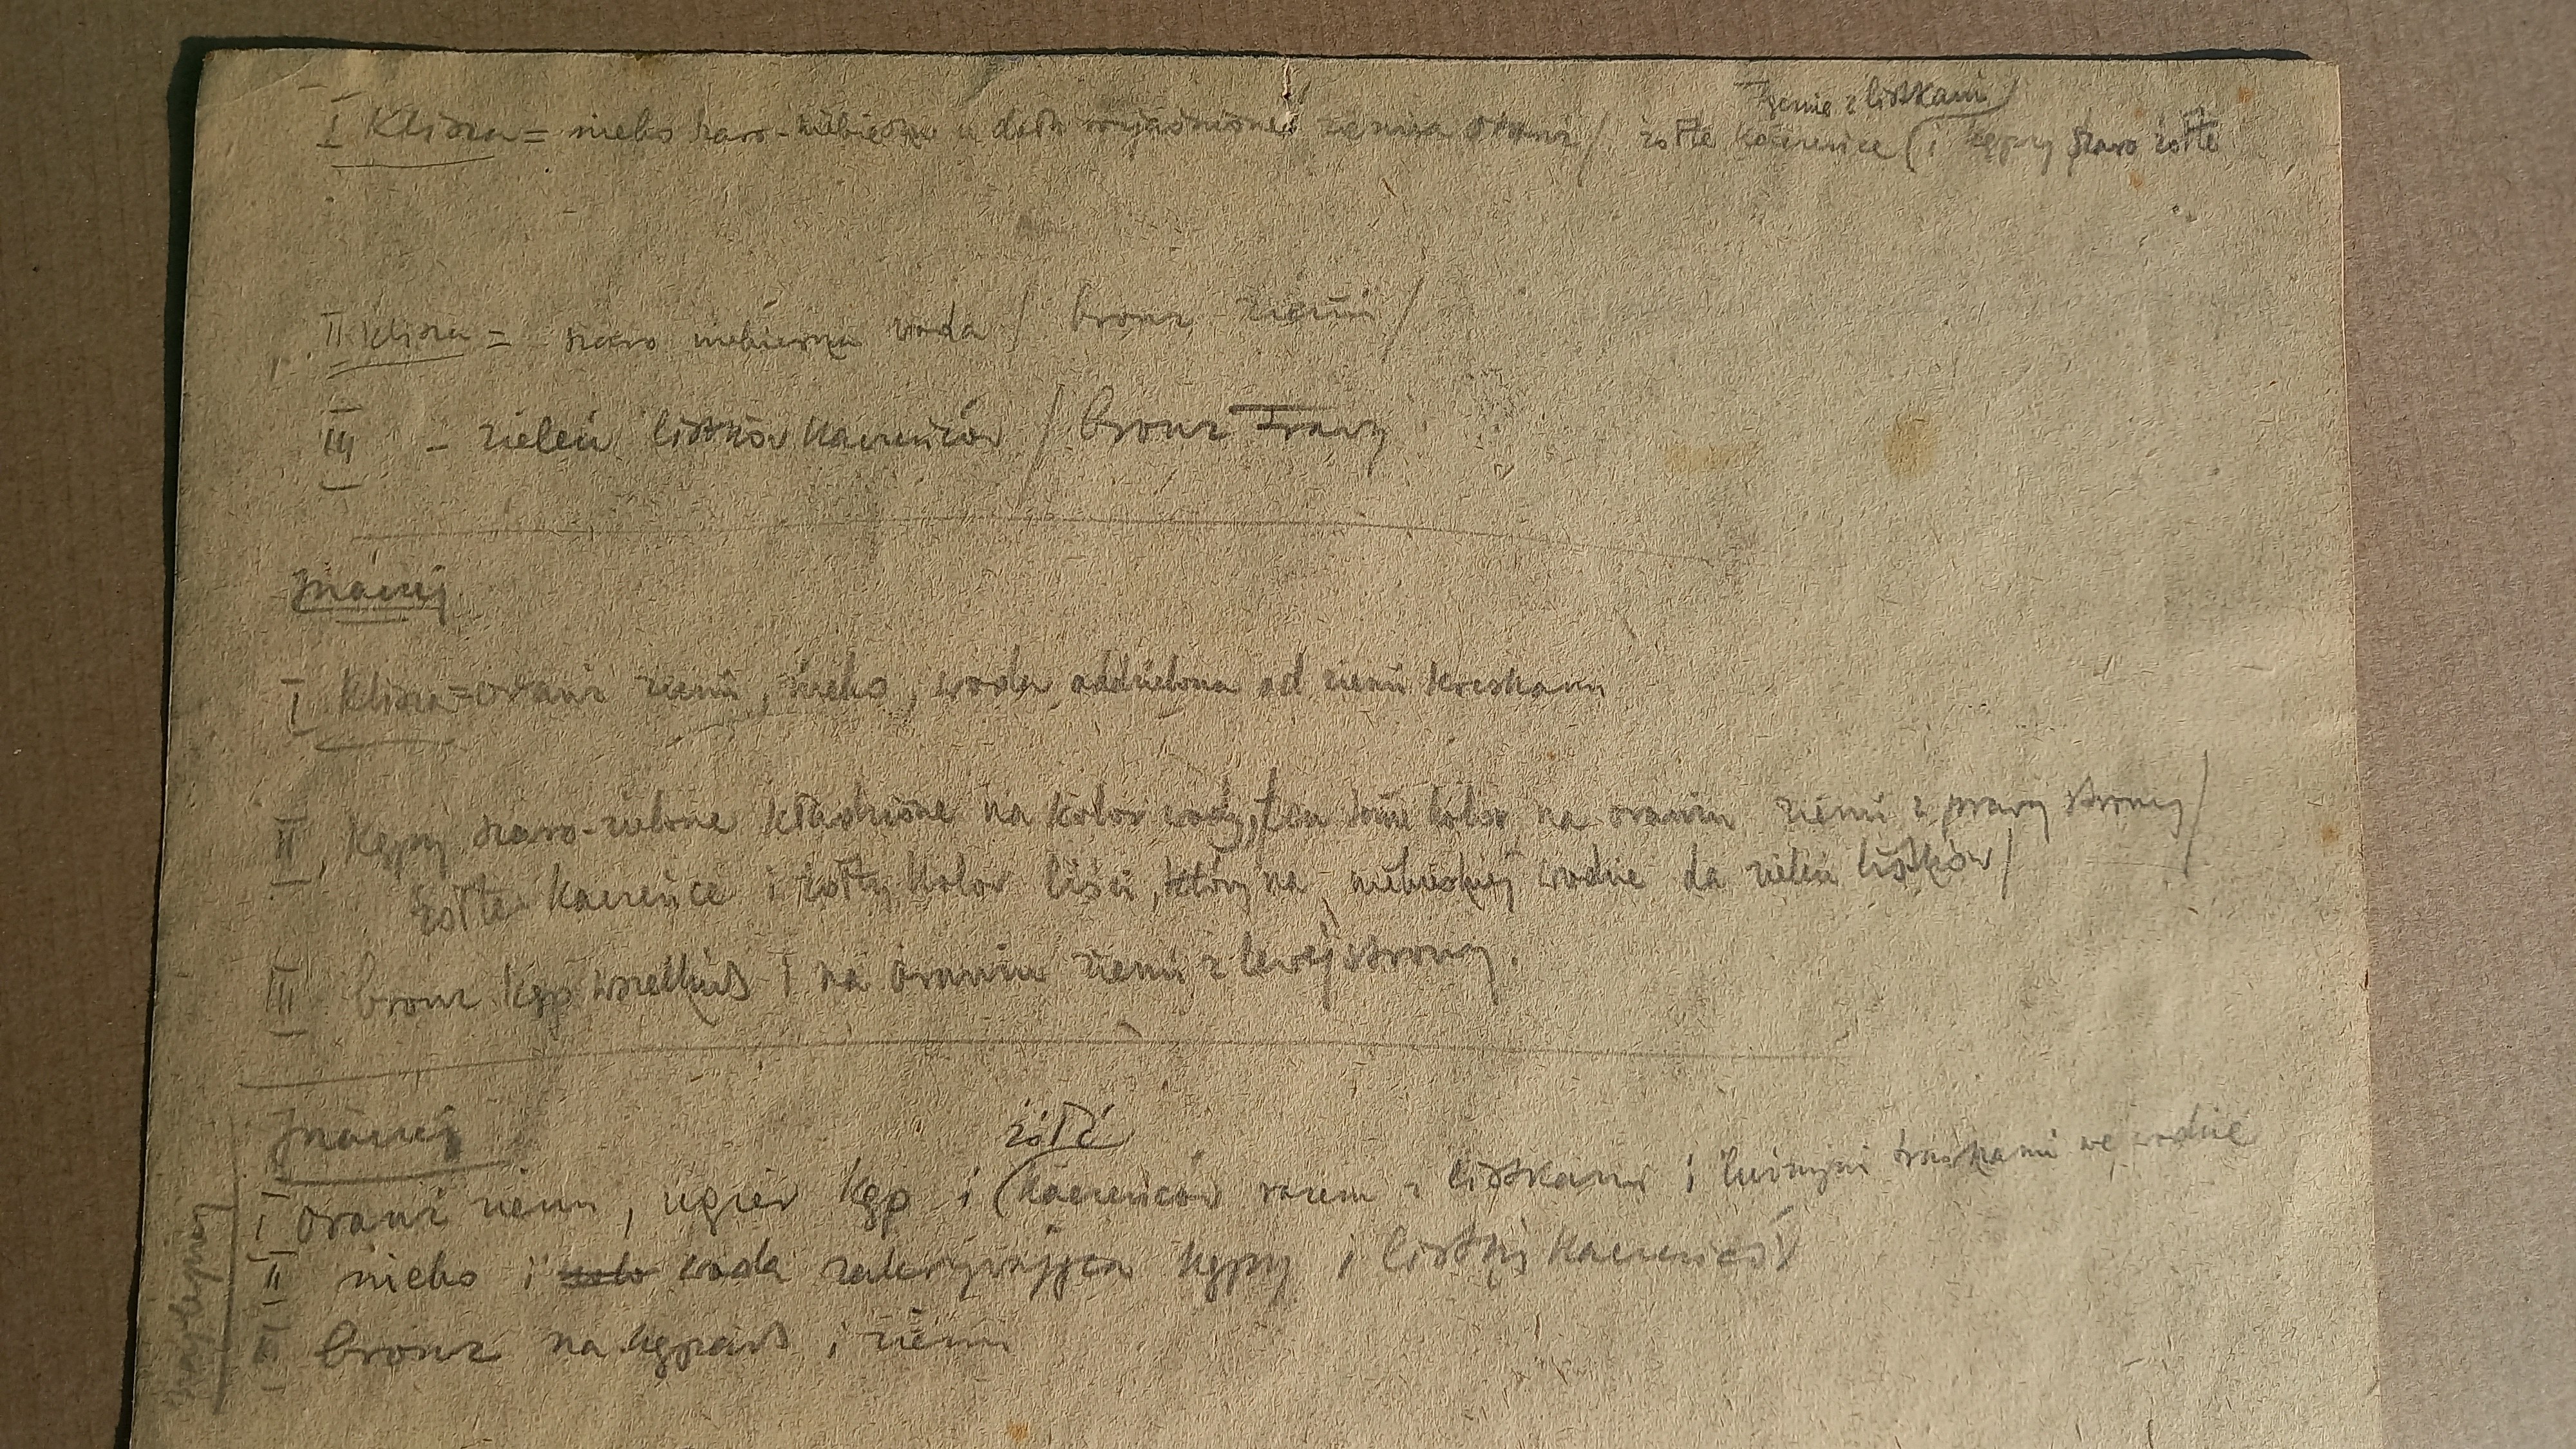 łącznie z listkami
I Klisza = niebo szaro-niebieskie u dołu rozjaśnione ziemia oranż / żółte kaczeńce (i kępy szaro żółte
II klisza = szaro niebieska woda / bronz ziemi /
III - zieleń listków kaczeńców / bronz trawy
Inaczej
I Klisza = oranż ziemi, niebo, woda oddzielona od ziemi kreskami
II Kępy szaro-zielone kładzione na kolor wody, ten kolor na oranżu ziemi z prawej strony /
żółte kaczeńce i żółty kolor liści, który na niebieskiej wodzie da zieleń listków /
III bronz kęp wszelkich i na oranżu ziemi z lewej strony.
Inaczej
żółć
I oranż ziemi, ugier kęp i (kaczeńców razem z listkami i i we wodzie
II niebo i woda zakrywająca kępy i listki kaczeńców
III bronz na kępach i ziemi
najlepiej